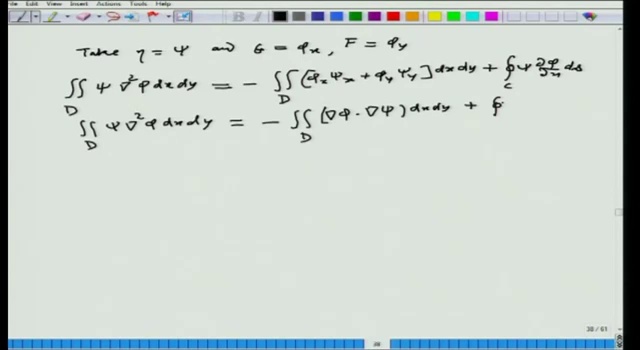 File Edit View Insert Actions Tools Help
Take η = ψ and G = φₓ, F = φ_y
∬_D ψ ∇²φ dx dy = - ∬_D [φₓ ψₓ + φ_y ψ_y] dx dy + ∮_C ψ ∂φ/∂n ds
∬_D ψ ∇²φ dx dy = - ∬_D (∇φ · ∇ψ) dx dy + ∮